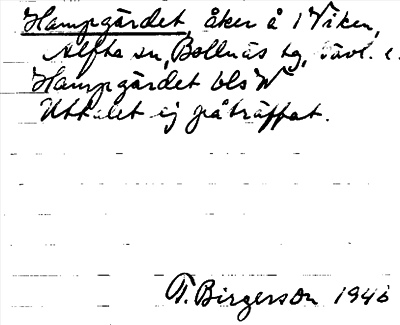 Hampgärdet, åker å 1 Viken,
Alfta sn, Bollnäs tg, Gävl. l.
Hampgärdet bls W
Uttalet ej påträffat.
T. Birgerson 1946